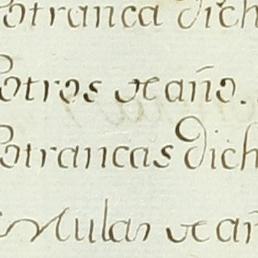 Potranca dich
Potros de año.
Potrancas dich
Mulas de añ